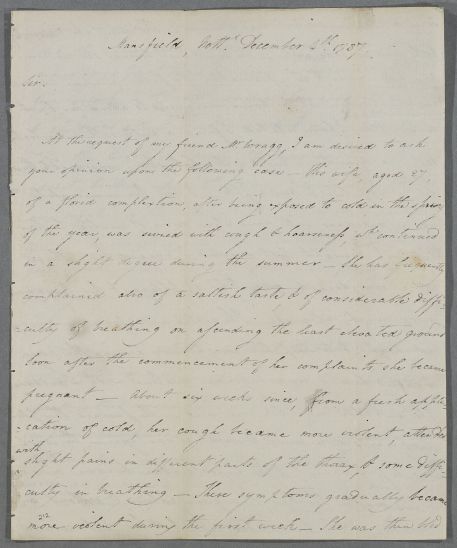 Mansfield, Nott.s December 4th. 1787.
Sir.
At the request of my friend Mr Cragg, I am desired to ask
your opinion upon the following case — His wife, aged 27
of a florid complexion, after being exposed to cold in the spring
of the year, was seized with cough & hoarseness, wh. continued
in a slight degree during the summer — She has frequently
complained also of a saltish taste, & of considerable diffi-
culty of breathing on ascending the least elevated ground
Soon after the commencement of her complaints she became
pregnant — About six weeks since, from a fresh appli-
cation of cold, her cough became more violent, attended
with
slight pains in different parts of the thorax & some diffi-
culty in breathing — These symptoms gradually became
more violent during the first week — She was then bled